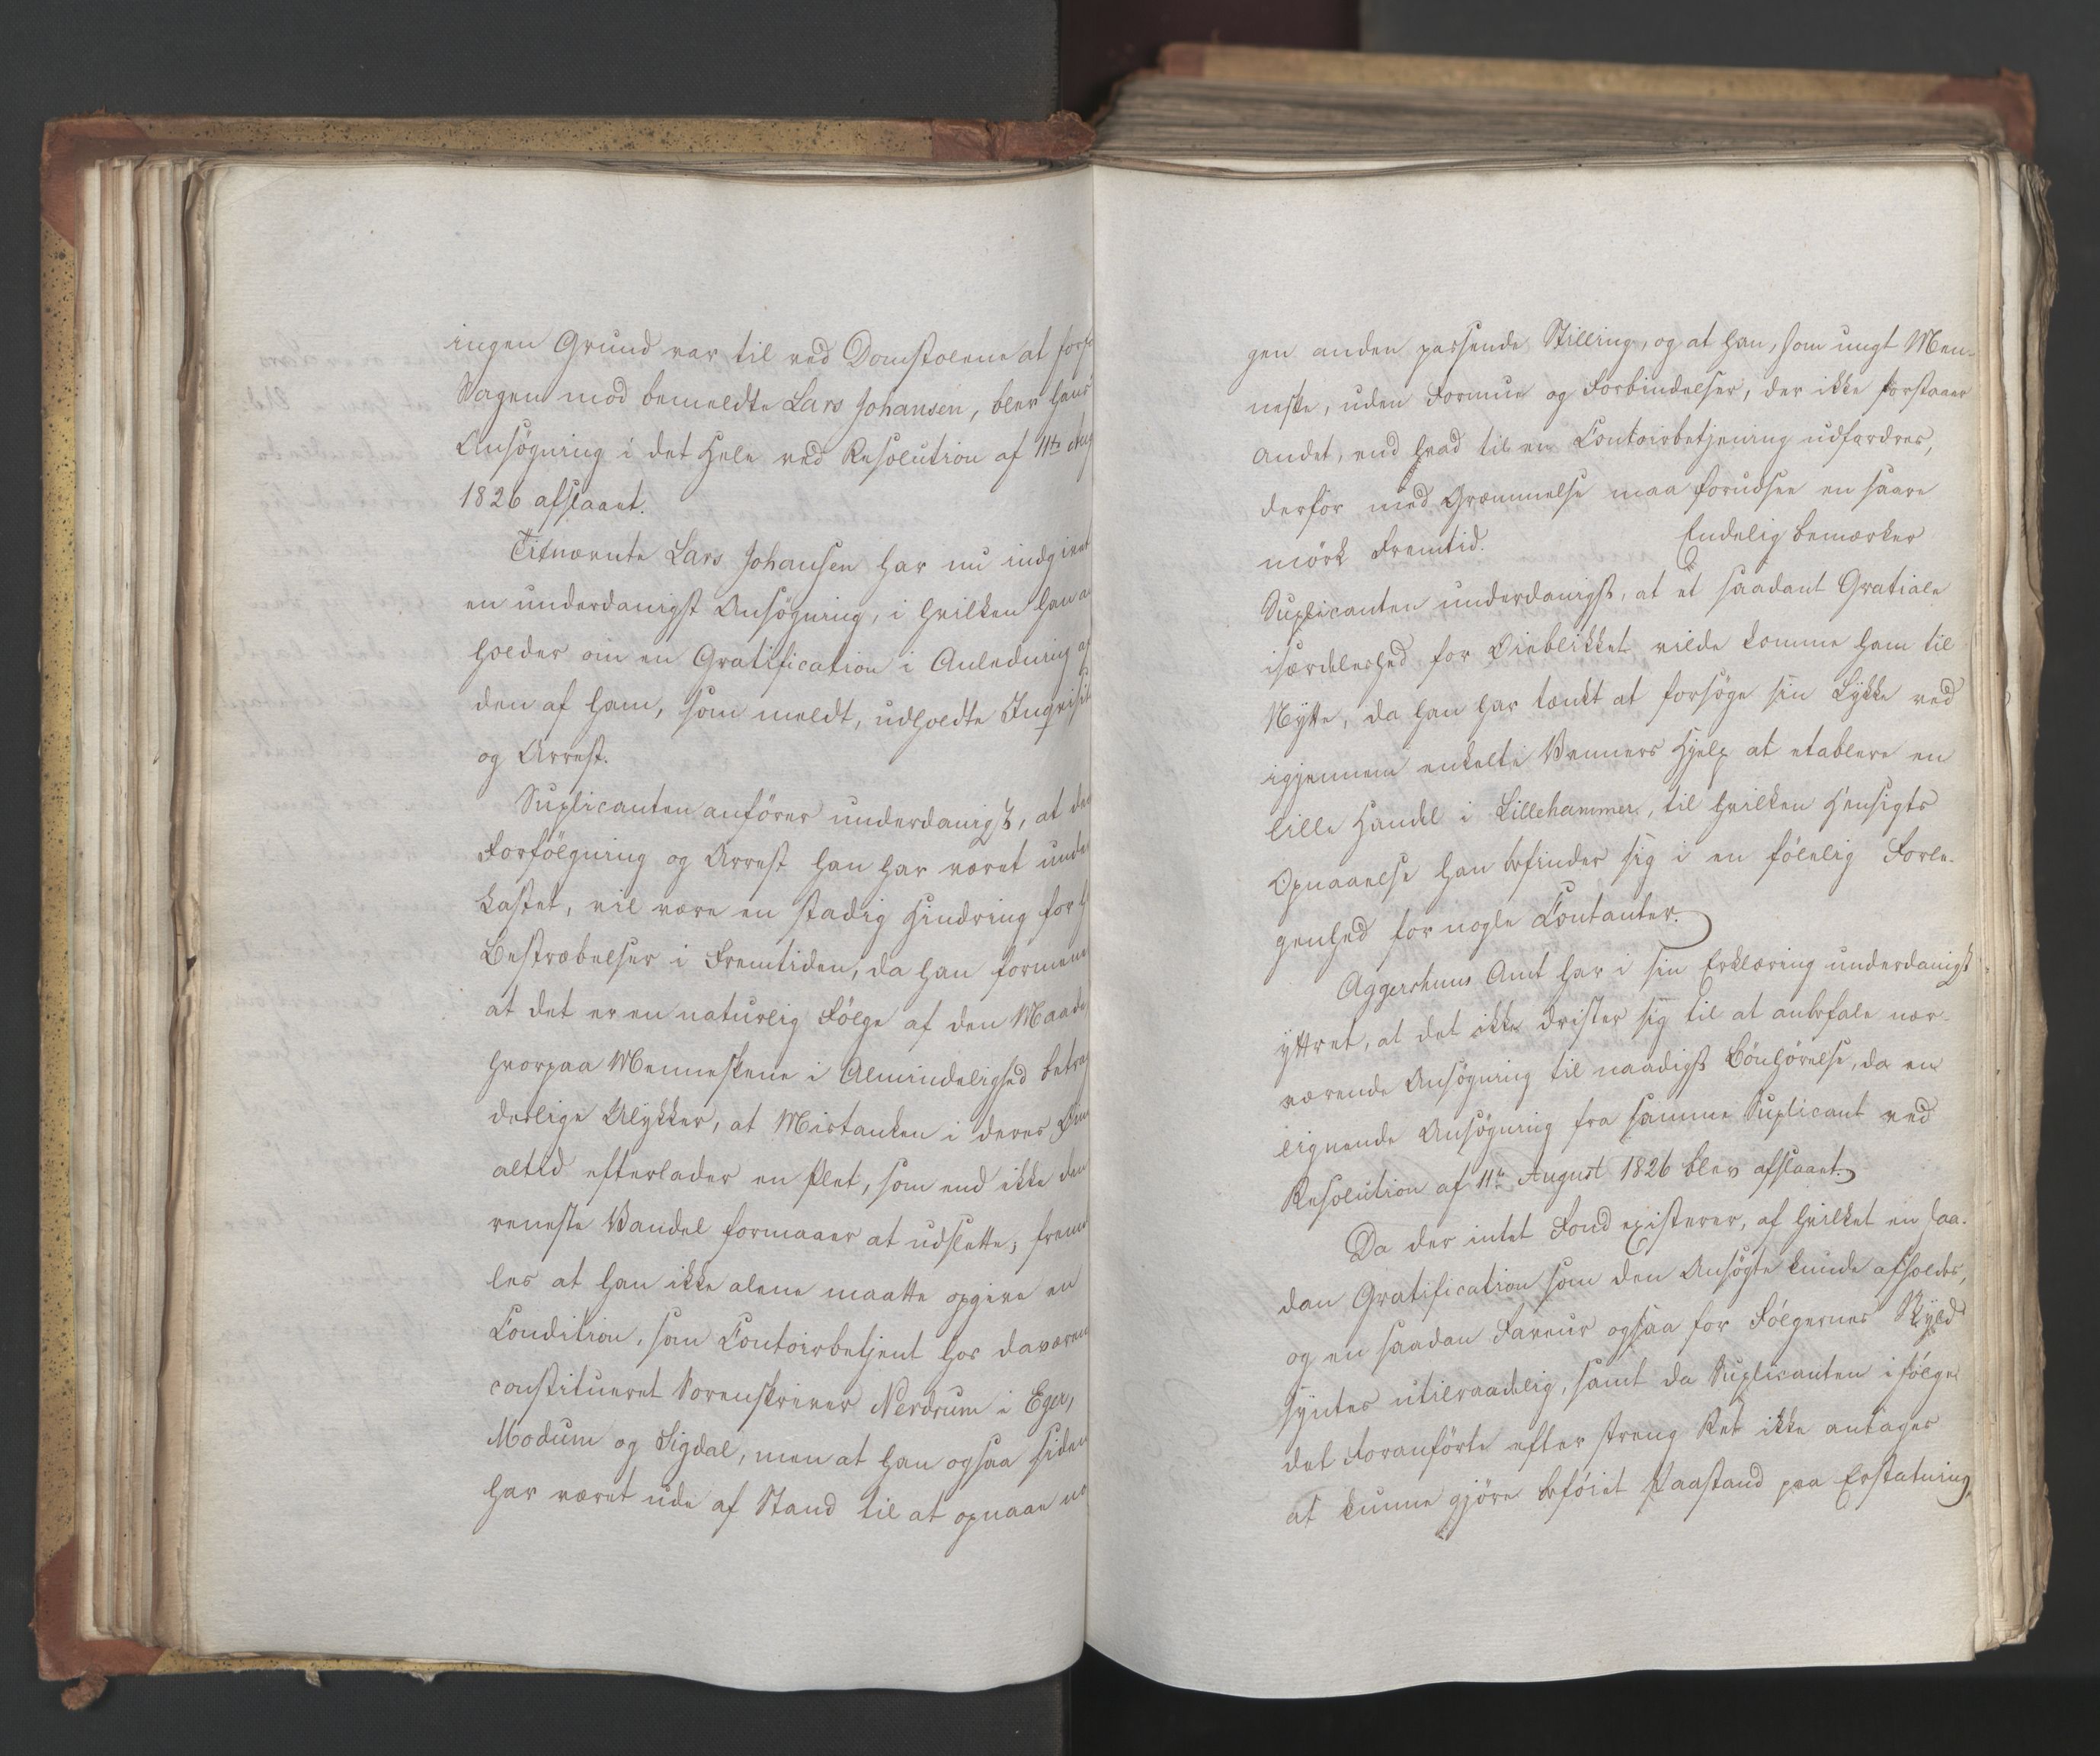 ingen Grund var til ved Domstolene at forfø
Sagen mod bemeldte Lars Johansen, blev hans
Ansøgning i det Hele ved Resolution af 11te Aug
1826 afslaaet.
Titnævnte Lars Johansen har nu indgivet
en underdanigst Ansøgning, i hvilken han a
holder om en Gratification i Anledning af
den af ham, som meldt, udholdte Inqvisit
og Arrest.
Suplicanten anfører underdanigst, at den
Forfølgning og Arrest han har været under
kastet, vil være en stadig Hindring for h
Bestræbelser i Fremtiden, da han formener
at det er en naturlig Følge af den Maade
hvorpaa Menneskene i Almindelighed betrag
deslige Ulykker, at Mistanken i deres Øine
altid efterlader en Plet, som end ikke den
reneste Vandel formaaer at udslette; frem
les at han ikke alene maatte opgive en
Condition, som Contoirbetjent hos daværen
constitueret Sorenskriver Nerdrum i Eger,
Modum og Sigdal, men at han ogsaa siden
har været ude af Stand til at opnaae no
gen anden passende Stilling, og at han, som ungt Men-
neske, uden Formue og Forbindelser, der ikke forstaaer
andet, end hvad til en Contoirbetjening udfordres,
derfor med Græmmelse maa forudsee en saare
mørk Fremtid. Endelig bemærker
Suplicanten underdanigst, at et saadant Gratiale
isærdeleshed for Øieblikket vilde komme ham til
Nytte, da han har tænkt at forsøge sin Lykke ved
igjennem enkelte Venners Hjelp at etablere en
lille Handel i Lillehammer, til hvilken Hensigts
Opnaaelse han befinder sig i en følelig Forle-
genhed for nogle Contanter.
Aggershuus Amt har i sin Erklæring underdanigst
yttret, at det ikke drister sig til at anbefale nær-
værende Ansøgning til naadigst Bønhørelse, da en
lignende Ansøgning fra samme Suplicant ved
Resolution af 11te August 1826 blev afslaaet.
Da der intet Fond existerer, af hvilket en saa-
dan Gratification som den Ansøgte kunde afholdes,
og en saadan Faveur ogsaa for Følgernes Skyld
syntes utilraadelig, samt da Suplicanten ifølge
det Foranførte efter streng Ret ikke antages
at kunne gjøre beføiet Paastand paa Erstatning,